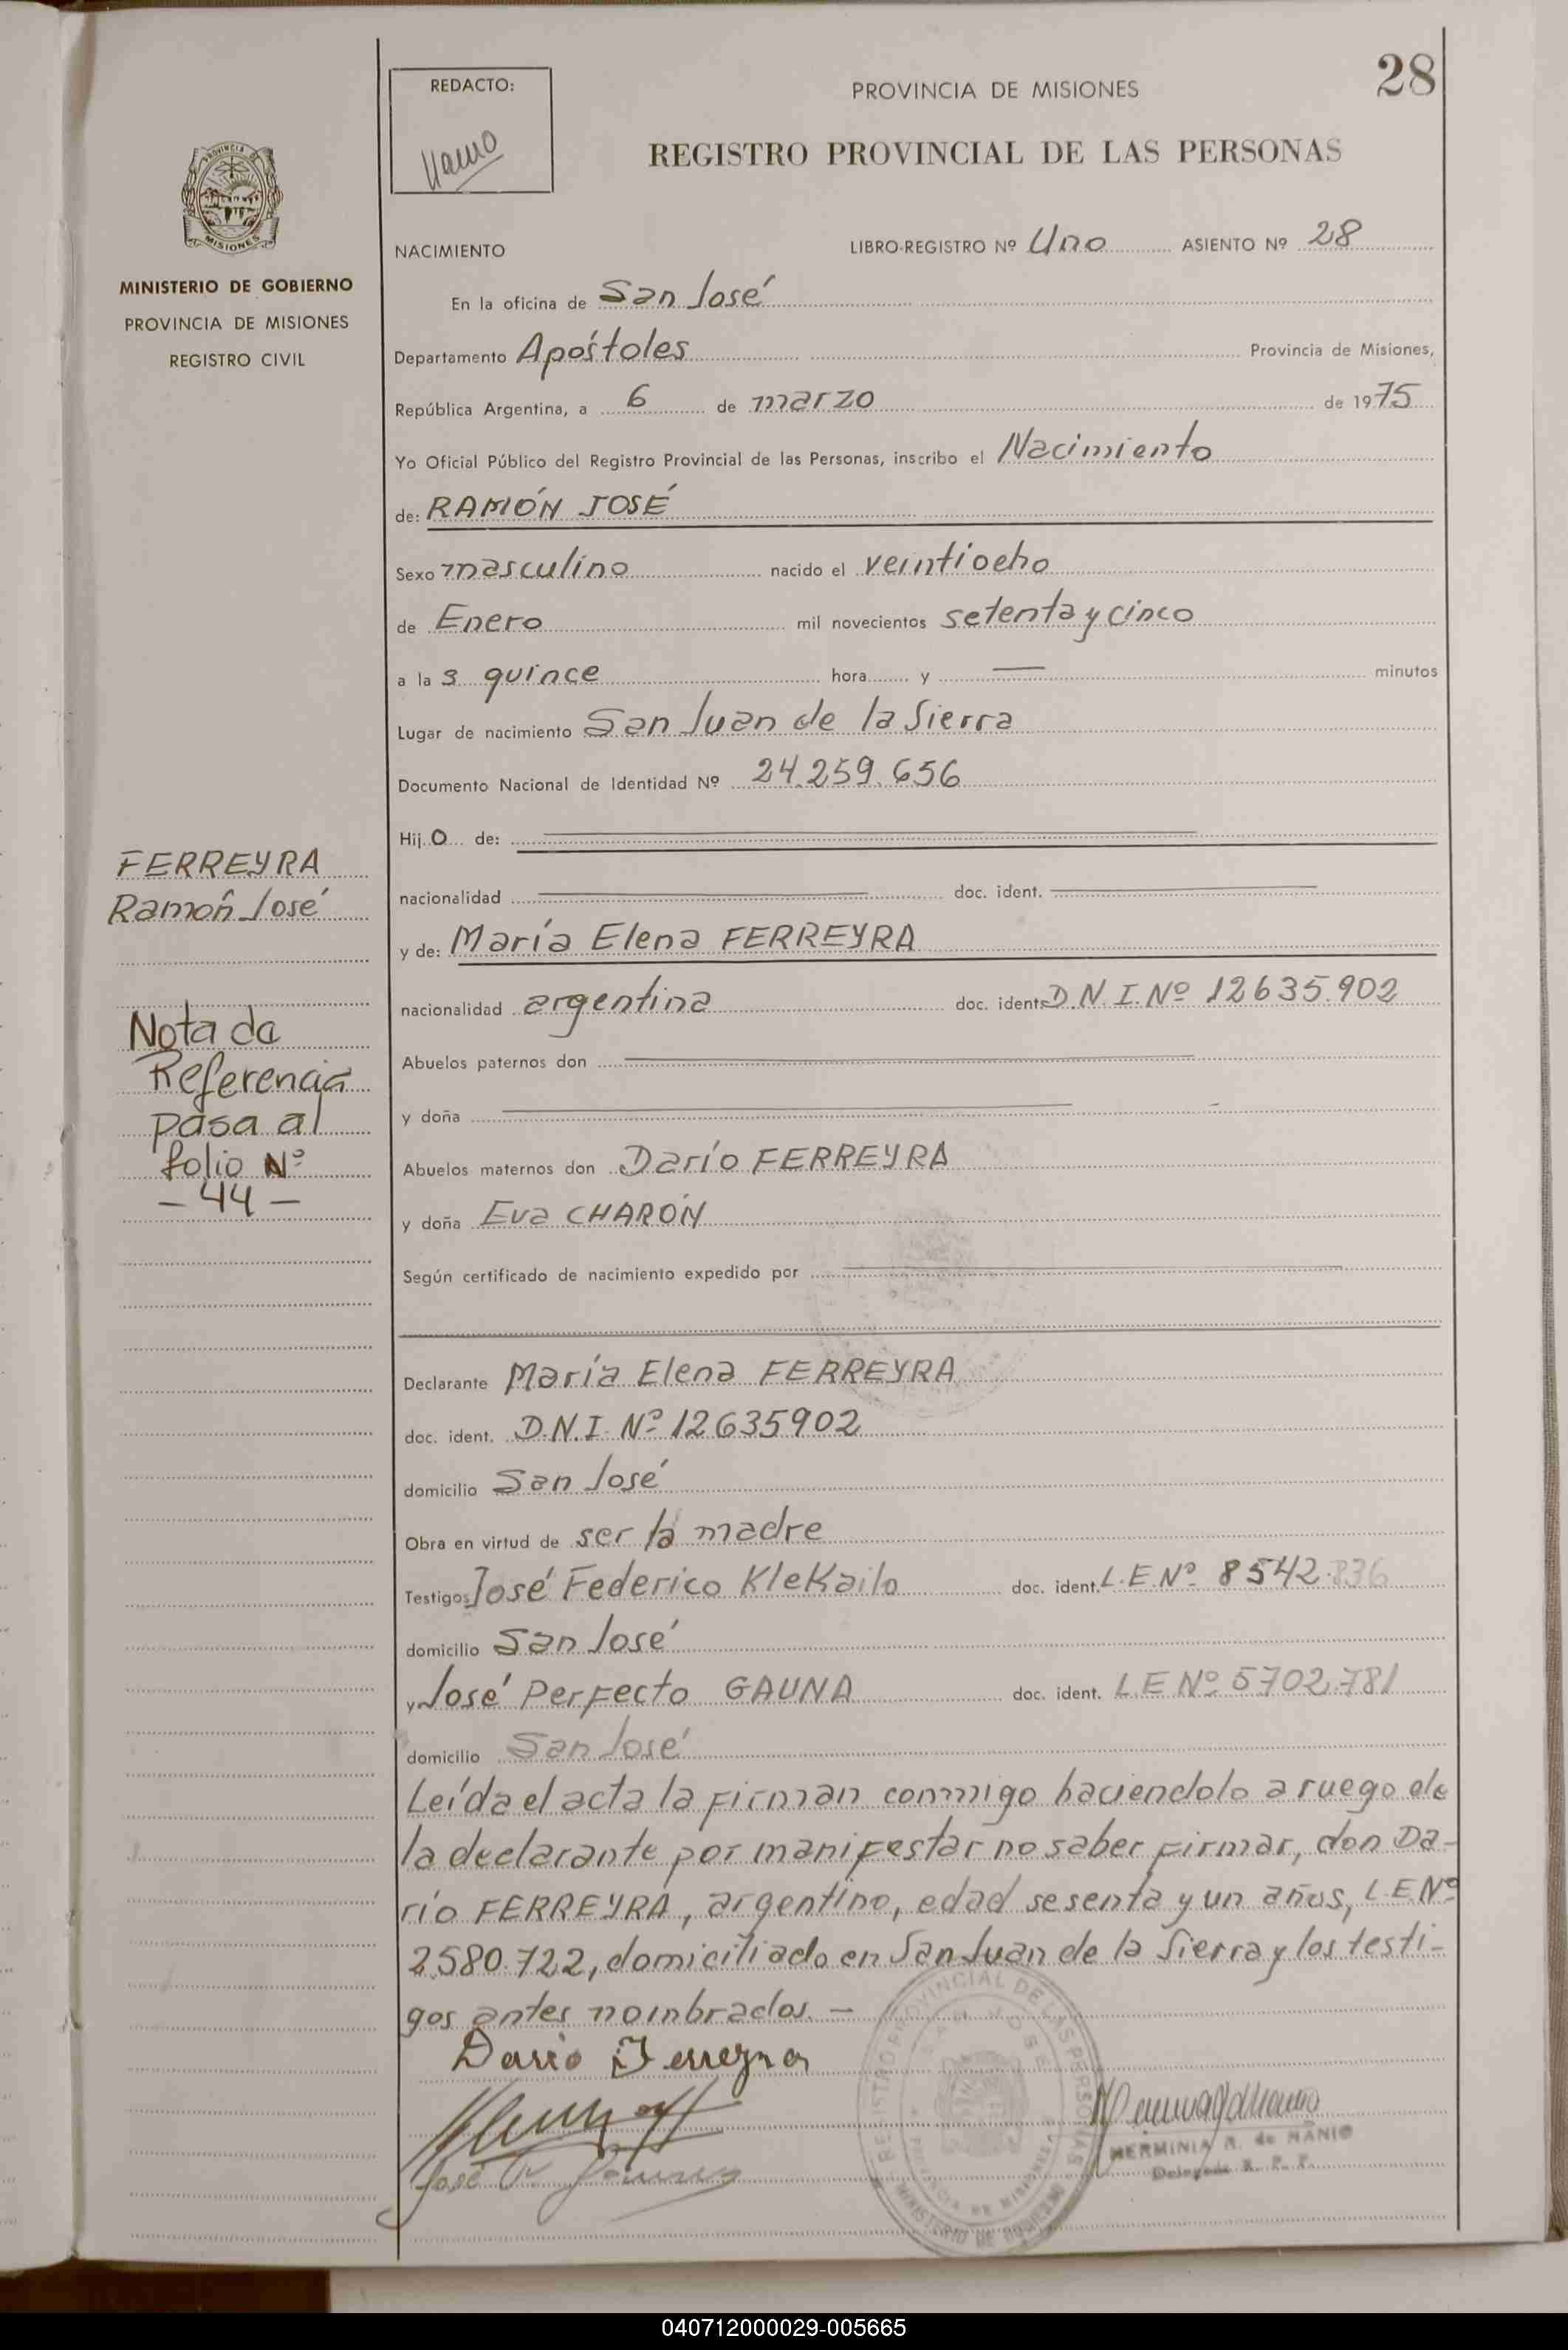 28
REDACTO:
PROVINCIA DE MISIONES
REGISTRO PROVINCIAL DE LAS PERSONAS
PROVINCIA DE MISIONES
MINISTERIO DE GOBIERNO
PROVINCIA DE MISIONES
REGISTRO CIVIL
NACIMIENTO LIBRO-REGISTRO Nº Uno ASIENTO Nº 28
En la oficina de San José
Departamento Apóstoles Provincia de Misiones,
República Argentina, a 6 de marzo de 1975
Yo Oficial Público del Registro Provincial de las Personas, inscribo el Nacimiento
de: RAMÓN JOSÉ
Sexo masculino nacido el veintiocho
de Enero mil novecientos setenta y cinco
a la s quince hora y — minutos
Lugar de nacimiento San Juan de la Sierra
Documento Nacional de Identidad Nº 24.259.656
Hij o de:
nacionalidad doc. ident.
y de: María Elena FERREYRA
nacionalidad argentina doc. ident. D.N.I. Nº 12635.902
Abuelos paternos don
y doña
Abuelos maternos don Darío FERREYRA
y doña Eva CHARÓN
Según certificado de nacimiento expedido por
Declarante María Elena FERREYRA
doc. ident. D.N.I. Nº 12635902
domicilio San José
Obra en virtud de ser la madre
Testigos José Federico KleKailo doc. ident. L.E.Nº 8542.836
domicilio San José
y José Perfecto GAUNA doc. ident. L.E Nº 5702.781
domicilio San José
Leída el acta la firman conmigo haciendolo a ruego de
la declarante por manifestar no saber firmar, don Da-
río FERREYRA, argentino, edad sesenta y un años, L.E.Nº
2.580.722, domiciliado en San Juan de la Sierra y los testi-
gos antes nombrados. —
Dario Ferreyra
José P. Gauna
REGISTRO PROVINCIAL DE LAS PERSONAS
SAN JOSE
PROVINCIA DE MISIONES
MINISTERIO DE GOBIERNO
HERMINIA R. de NANIO
Delegada R. P. P.
FERREYRA
Ramón José
Nota de
Referencia
pasa al
folio Nº
— 44 —
040712000029-005665